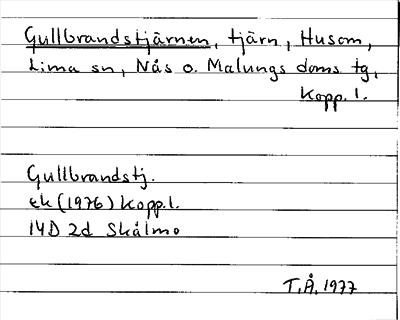 Gullbrandstjärnen, tjärn, Husom,
Lima sn, Nås o. Malungs doms tg,
Kopp. l.
Gullbrandstj.
ek (1976) Kopp.l.
14D 2d Skålmo
T.Å. 1977